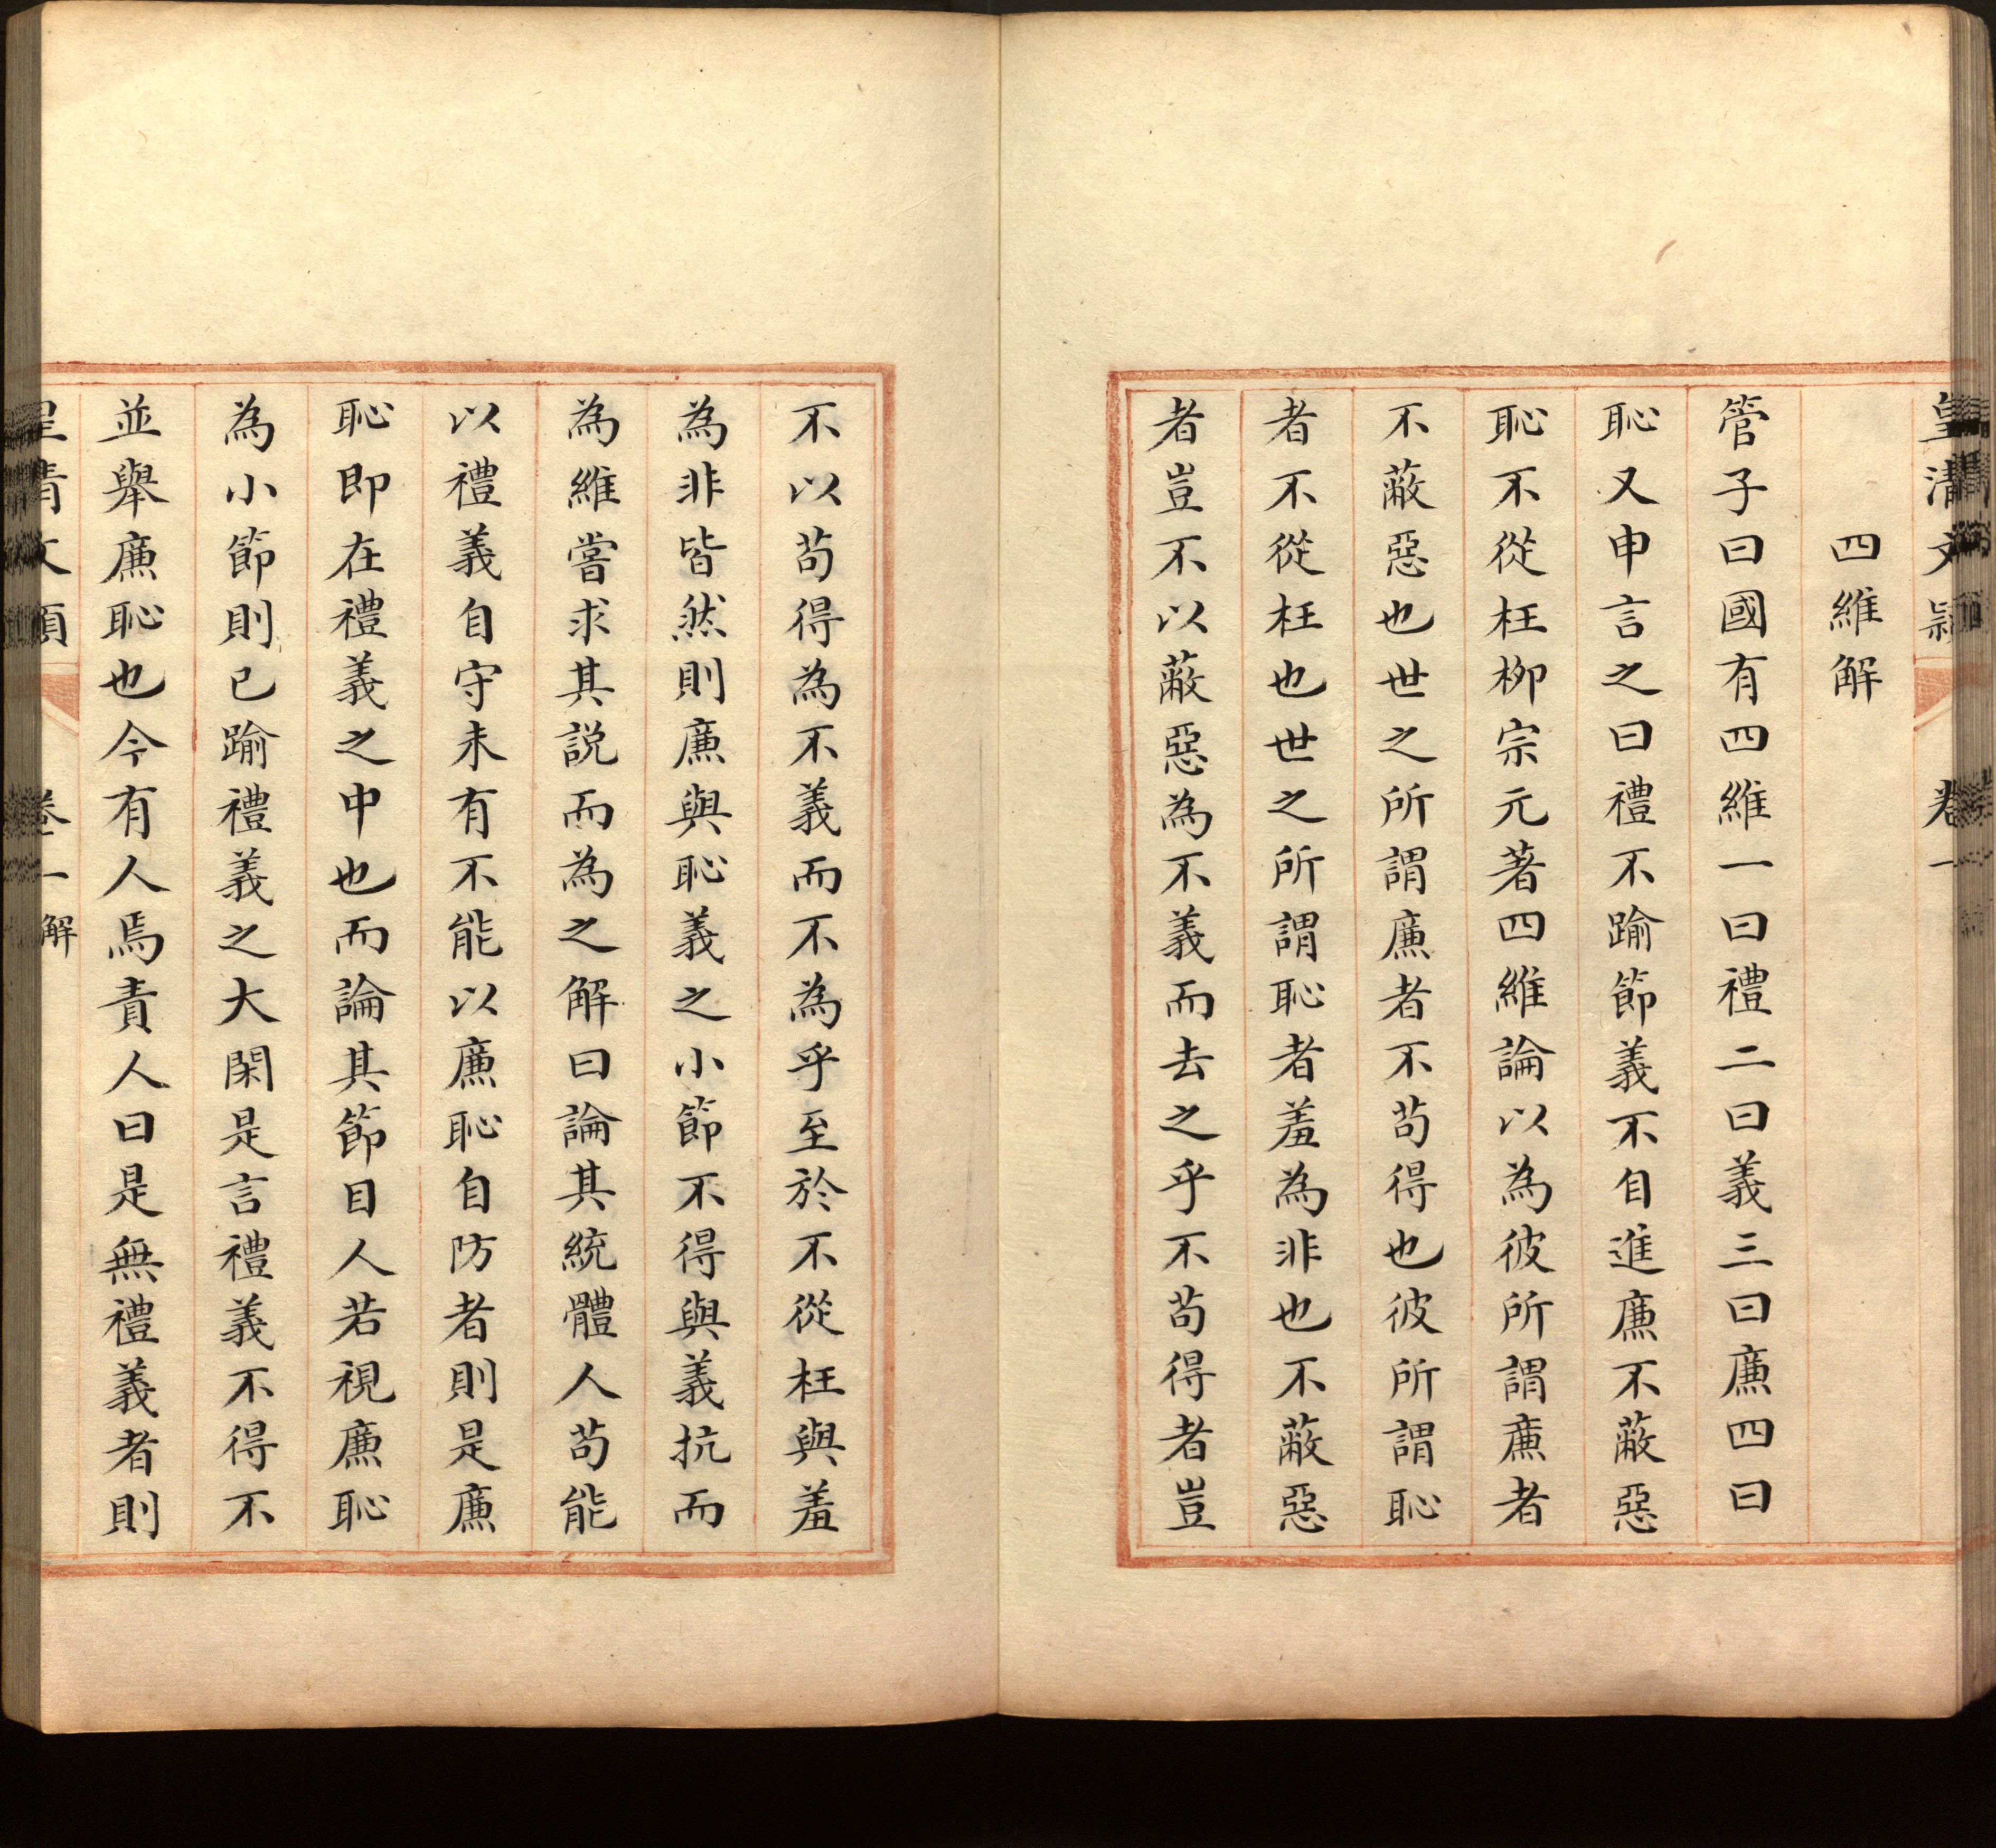 皇清文穎 卷一
四維解
管子曰國有四維一曰禮二曰義三曰廉四曰
恥又申言之曰禮不踰節義不自進廉不蔽惡
恥不從枉柳宗元著四維論以為彼所謂廉者
不蔽惡也世之所謂廉者不苟得也彼所謂恥
者不從枉也世之所謂恥者羞為非也不蔽惡
者豈不以蔽惡為不義而去之乎不苟得者豈
不以苟得為不義而不為乎至於不從枉與羞
為非皆然則廉與恥義之小節不得與義抗而
為維嘗求其説而為之解曰論其統體人苟能
以禮義自守未有不能以廉恥自防者則是廉
恥即在禮義之中也而論其節目人若視廉恥
為小節則已踰禮義之大閑是言禮義不得不
並舉廉恥也今有人焉責人曰是無禮義者則
皇清文穎 卷一 解